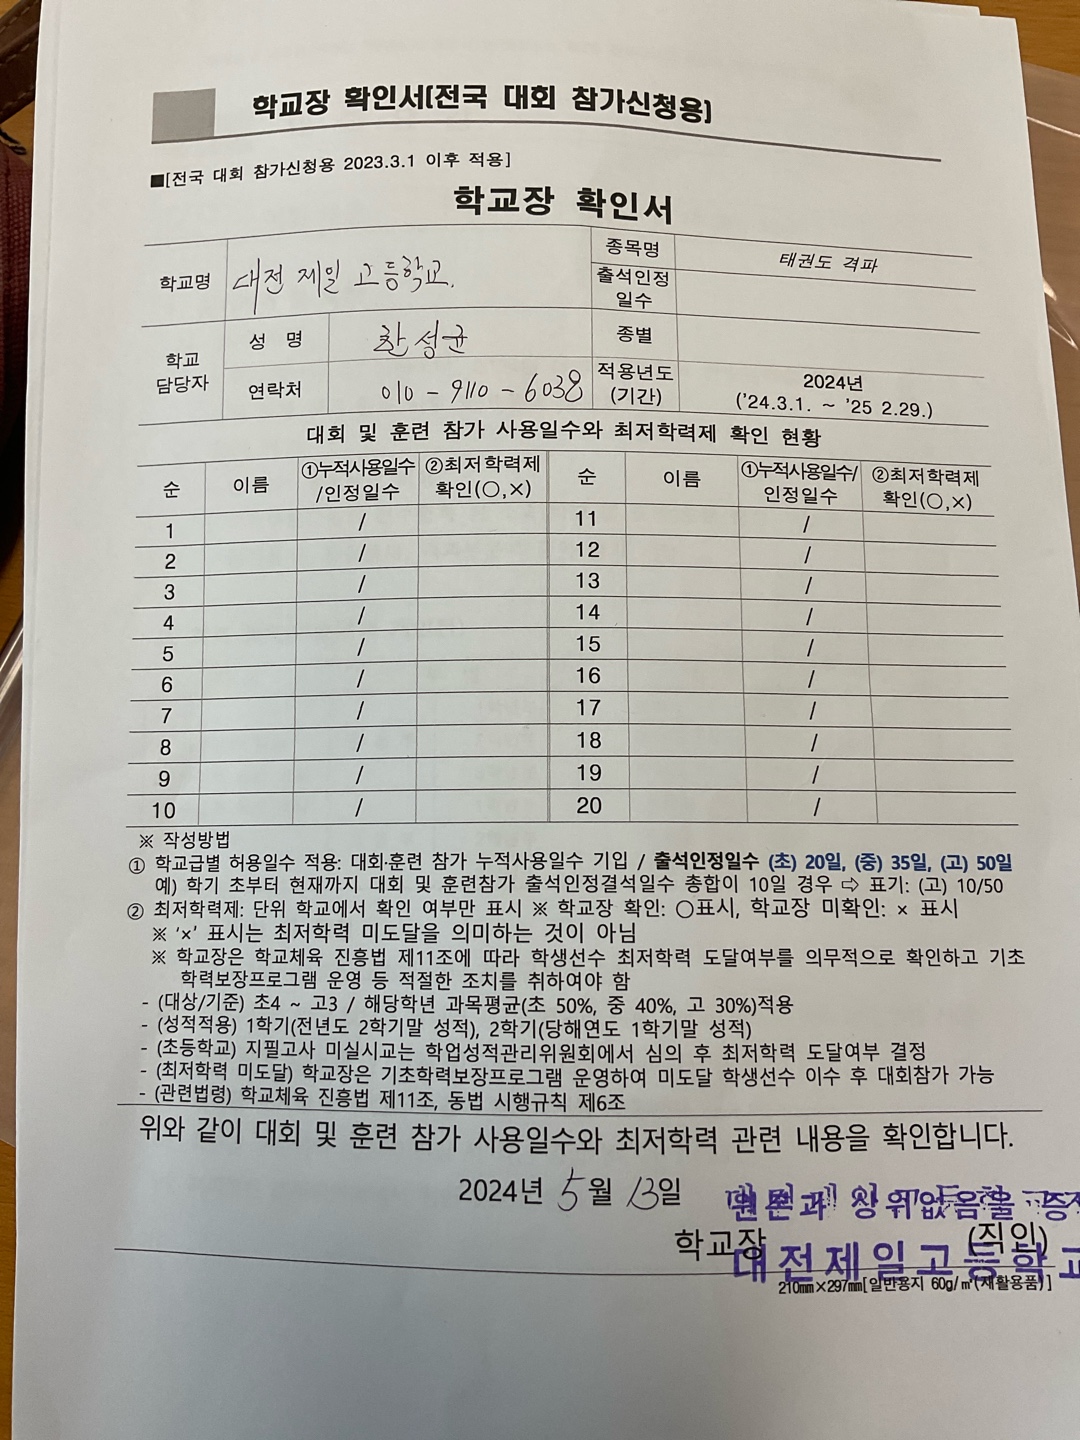 학교장 확인서[전국 대회 참가신청용]
■[전국 대회 참가신청용 2023.3.1 이후 적용]
학교장 확인서
학교명 대전 제일 고등학교. 종목명 태권도 격파
출석인정 일수
학교 담당자 성 명 성균 종별
연락처 010 - 9110 - 6038 적용년도 (기간) 2024년 ('24.3.1. ~ '25 2.29.)
대회 및 훈련 참가 사용일수와 최저학력제 확인 현황
순 이름 ①누적사용일수/인정일수 ②최저학력제 확인(○,×) 순 이름 ①누적사용일수/인정일수 ②최저학력제 확인(○,×)
1 / 11 /
2 / 12 /
3 / 13 /
4 / 14 /
5 / 15 /
6 / 16 /
7 / 17 /
8 / 18 /
9 / 19 /
10 / 20 /
※ 작성방법
① 학교급별 허용일수 적용: 대회·훈련 참가 누적사용일수 기입 / 출석인정일수 (초) 20일, (중) 35일, (고) 50일
예) 학기 초부터 현재까지 대회 및 훈련참가 출석인정결석일수 총합이 10일 경우 ⇨ 표기: (고) 10/50
② 최저학력제: 단위 학교에서 확인 여부만 표시 ※ 학교장 확인: ○표시, 학교장 미확인: × 표시
※ '×' 표시는 최저학력 미도달을 의미하는 것이 아님
※ 학교장은 학교체육 진흥법 제11조에 따라 학생선수 최저학력 도달여부를 의무적으로 확인하고 기초
학력보장프로그램 운영 등 적절한 조치를 취하여야 함
- (대상/기준) 초4 ~ 고3 / 해당학년 과목평균(초 50%, 중 40%, 고 30%)적용
- (성적적용) 1학기(전년도 2학기말 성적), 2학기(당해연도 1학기말 성적)
- (초등학교) 지필고사 미실시교는 학업성적관리위원회에서 심의 후 최저학력 도달여부 결정
- (최저학력 미도달) 학교장은 기초학력보장프로그램 운영하여 미도달 학생선수 이수 후 대회참가 가능
- (관련법령) 학교체육 진흥법 제11조, 동법 시행규칙 제6조
위와 같이 대회 및 훈련 참가 사용일수와 최저학력 관련 내용을 확인합니다.
2024년 5월 13일
원본과 상위없음을 증
학교장 (직인)
대전제일고등학교
210㎜×297㎜[일반용지 60g/㎡(재활용품)]